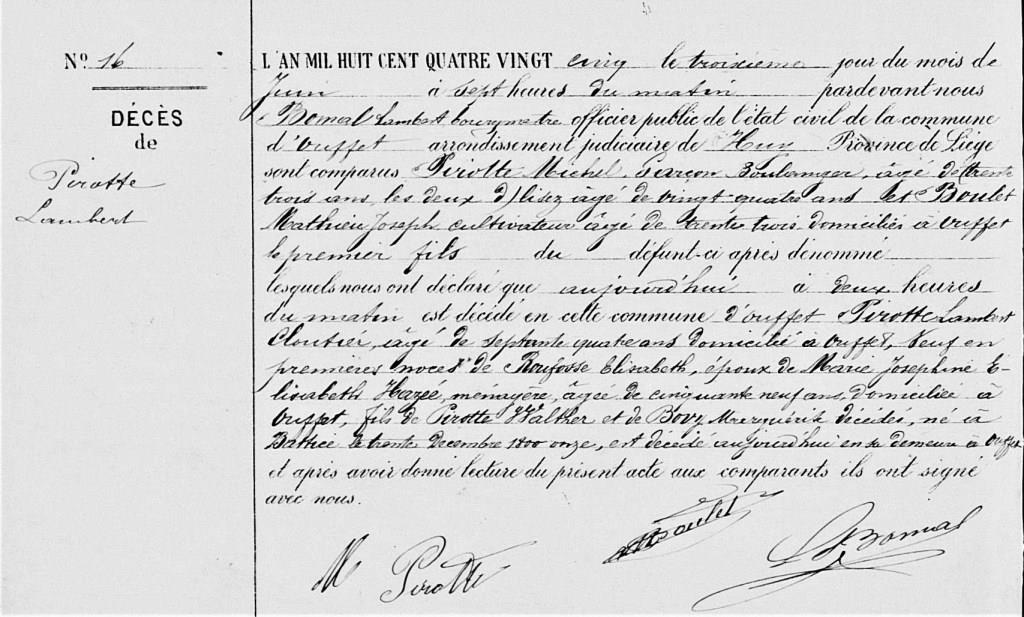 Nº 16
DÉCÈS
de
Pirotte
Lambert
L'AN MIL HUIT CENT QUATRE VINGT cinq le troisième jour du mois de
Juin à sept heures du matin pardevant-nous
Bomal Lambert bourgmestre officier public de l'état civil de la commune
d'Ouffet arrondissement judiciaire de Huy Province de Liége
sont comparus Pirotte Michel Garçon Boulanger, âgé de trente
trois ans, les deux d) lisez âgé de vingt-quatre ans et Boulet
Mathieu Joseph cultivateur âgé de trente trois domiciliés à Ouffet
le premier fils du défunt-ci après dénommé
lesquels nous ont déclaré que aujourd'hui à deux heures
du matin est décédé en cette commune d'Ouffet Pirotte Lambert
Cloutier, âgé de septante quatre ans domicilié à Ouffet, Veuf en
premières noces de Roufosse Elisabeth, époux de Marie Josephine E-
lisabeth Hazée, ménagère, âgée de cinquante neuf ans, domiciliée à
Ouffet, fils de Pirotte Walther et de Bovy Marguérite décédés, né à
Battice le trente Decembre 1800 onze, est décédé aujourd'hui en sa demeure à Ouffet
et après avoir donné lecture du présent acte aux comparants ils ont signé
avec nous.
M Pirotte
Boulet
L Bomal